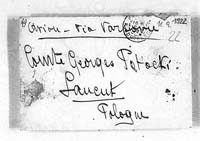 Avion - via Varsovie
1922
22
Comte Georges Potocki
Lancut
Pologne